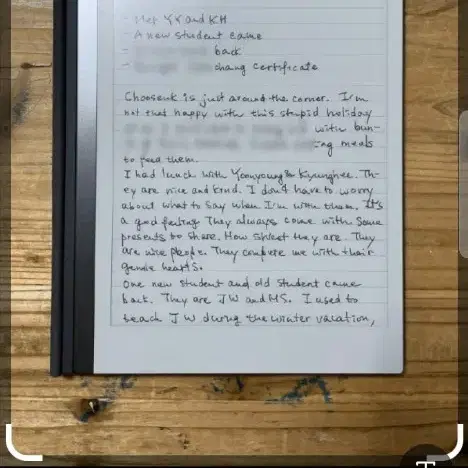 - Met YY and KH
- A new student came
- back
- chang certificate
Choosenk is just around the corner. I'm
not that happy with this stupid holiday
with bun-
ing meals
to feed them.
I had lunch with Yomyoung & Kyunghee. Th-
ey are nice and kind. I don't have to worry
about what to say when I'm with them. It's
a good feeling They always come with some
presents to share. How sweet they are. They
are nice people. They me with their
gentle hearts.
One new student and old student came
back. They are JW and MS. I used to
teach JW during the winter vacation,